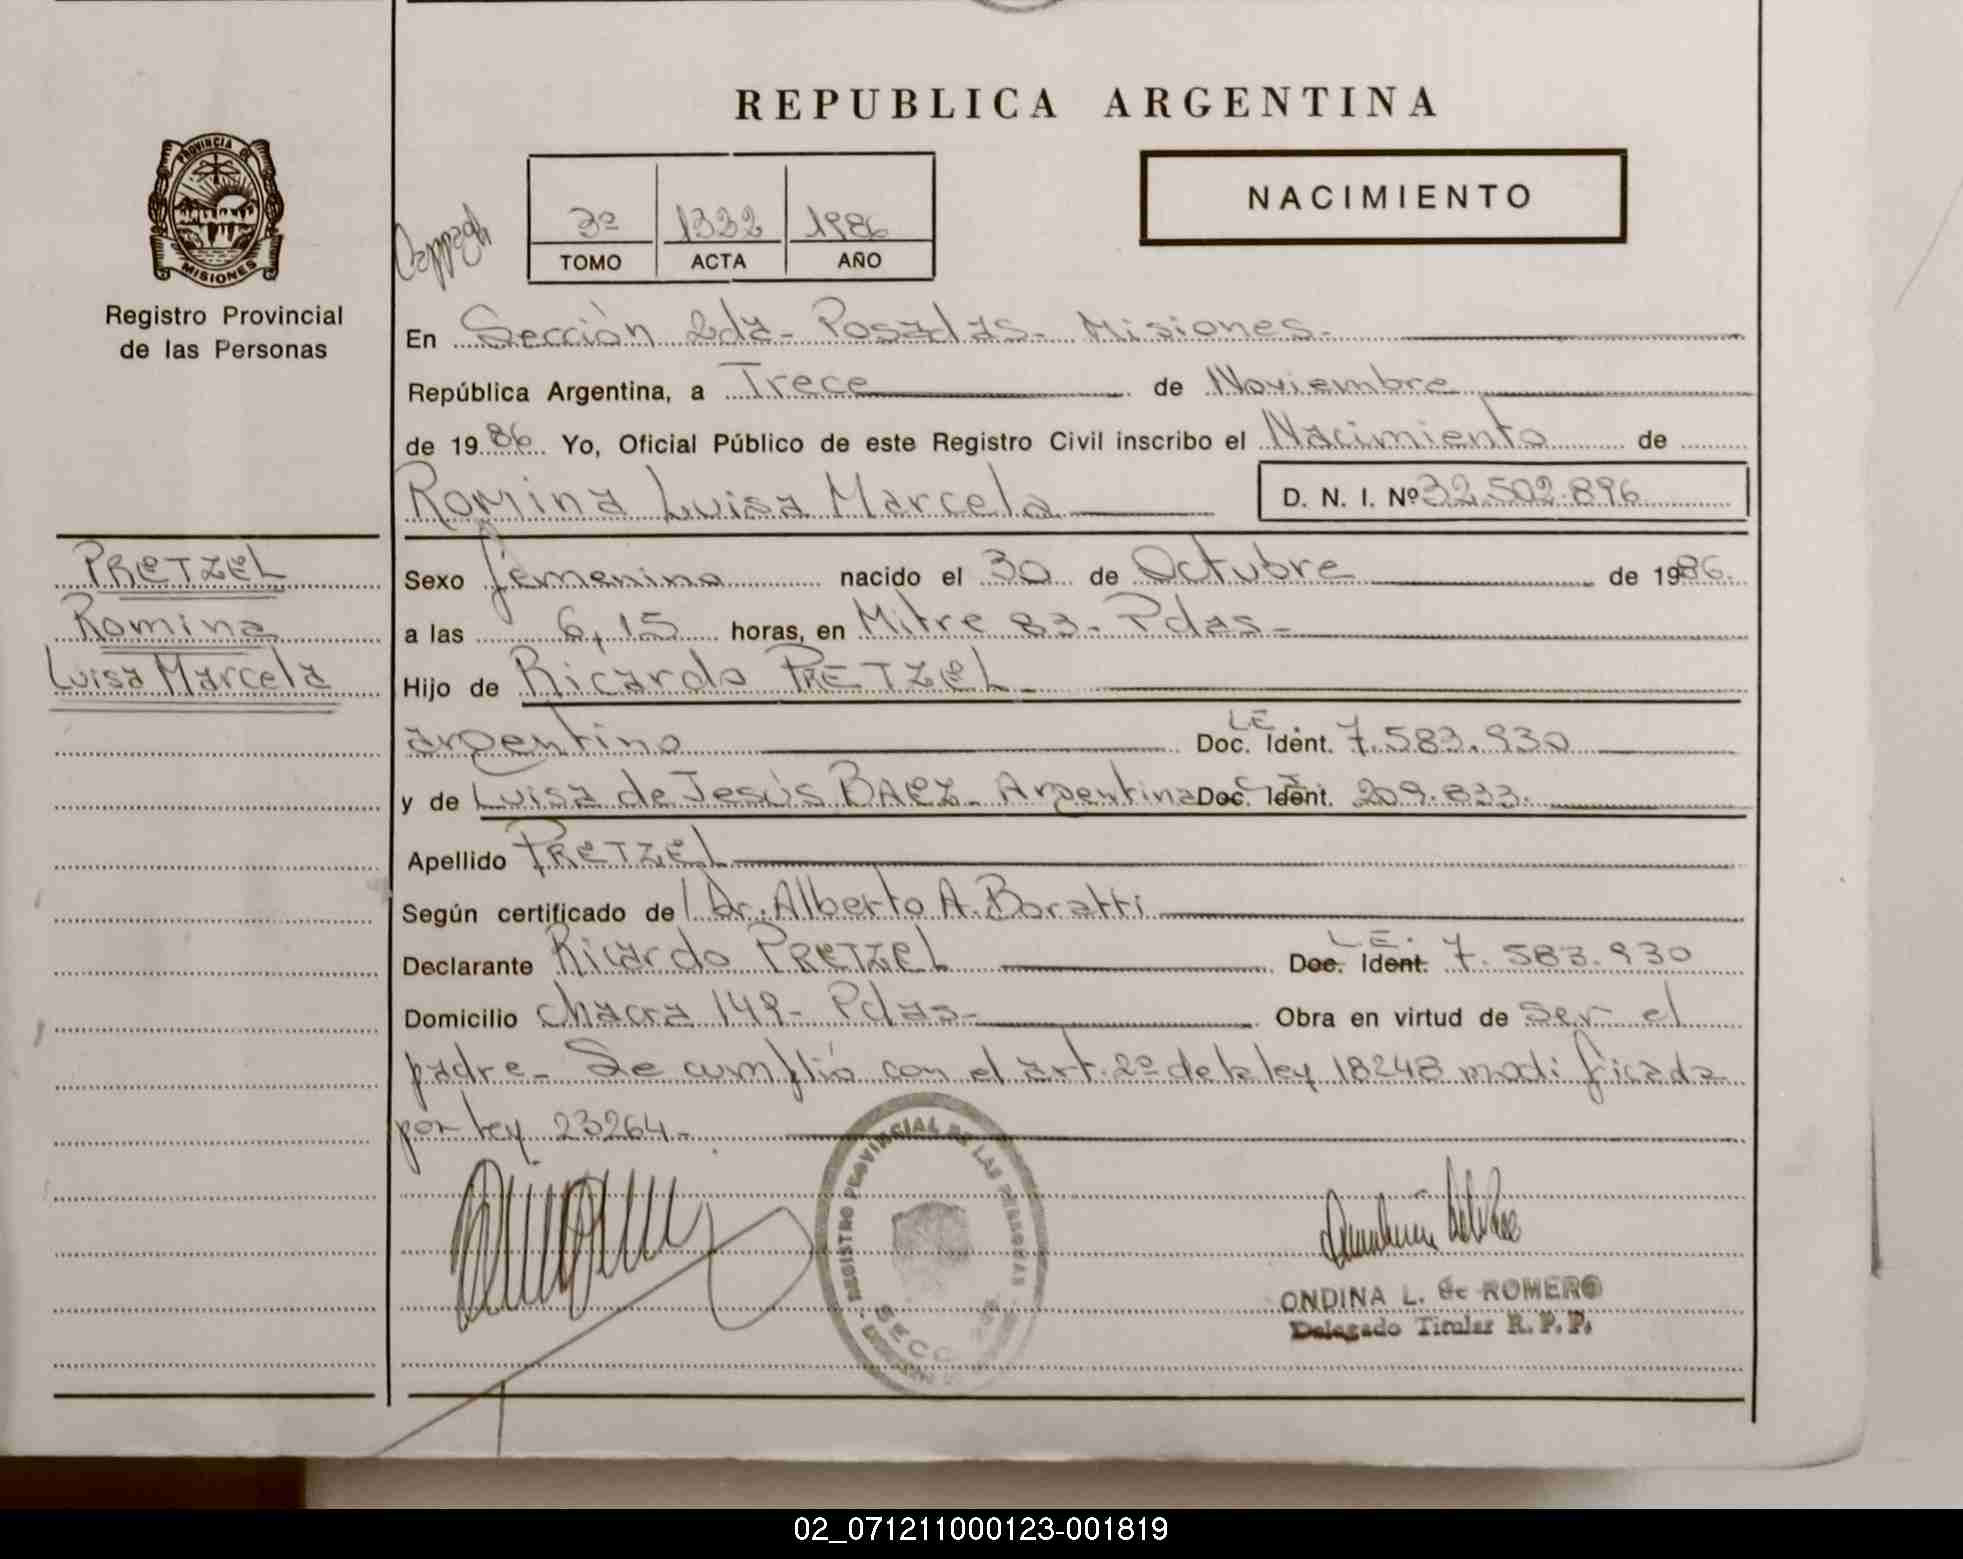 REPUBLICA ARGENTINA
PROVINCIA DE
MISIONES
Registro Provincial
de las Personas
NACIMIENTO
3º 1332 1986
TOMO ACTA AÑO
En Sección 2da - Posadas - Misiones -
República Argentina, a Trece de Noviembre
de 1986 Yo, Oficial Público de este Registro Civil inscribo el Nacimiento de
Romina Luisa Marcela
D. N. I. Nº 32.502.896
PRETZEL
Romina
Luisa Marcela
Sexo femenino nacido el 30 de Octubre de 1986.
a las 6,15 horas, en Mitre 83 - Pdas -
Hijo de Ricardo PRETZEL
argentino L.E. Doc. Ident. 7.583.930
y de Luisa de Jesús BAEZ - Argentina Doc. Ident. 209.833.
Apellido PRETZEL
Según certificado de Dr. Alberto A. Boratti
Declarante Ricardo PRETZEL L.E. Doc. Ident. 7.583.930
Domicilio chacra 149 - Pdas - Obra en virtud de ser el
padre - Se cumplió con el art. 2º de la ley 18248 modificada
por ley 23264 -
REGISTRO PROVINCIAL DE LAS PERSONAS
ONDINA L. de ROMERO
Delegado Titular R. P. P.
02_071211000123-001819